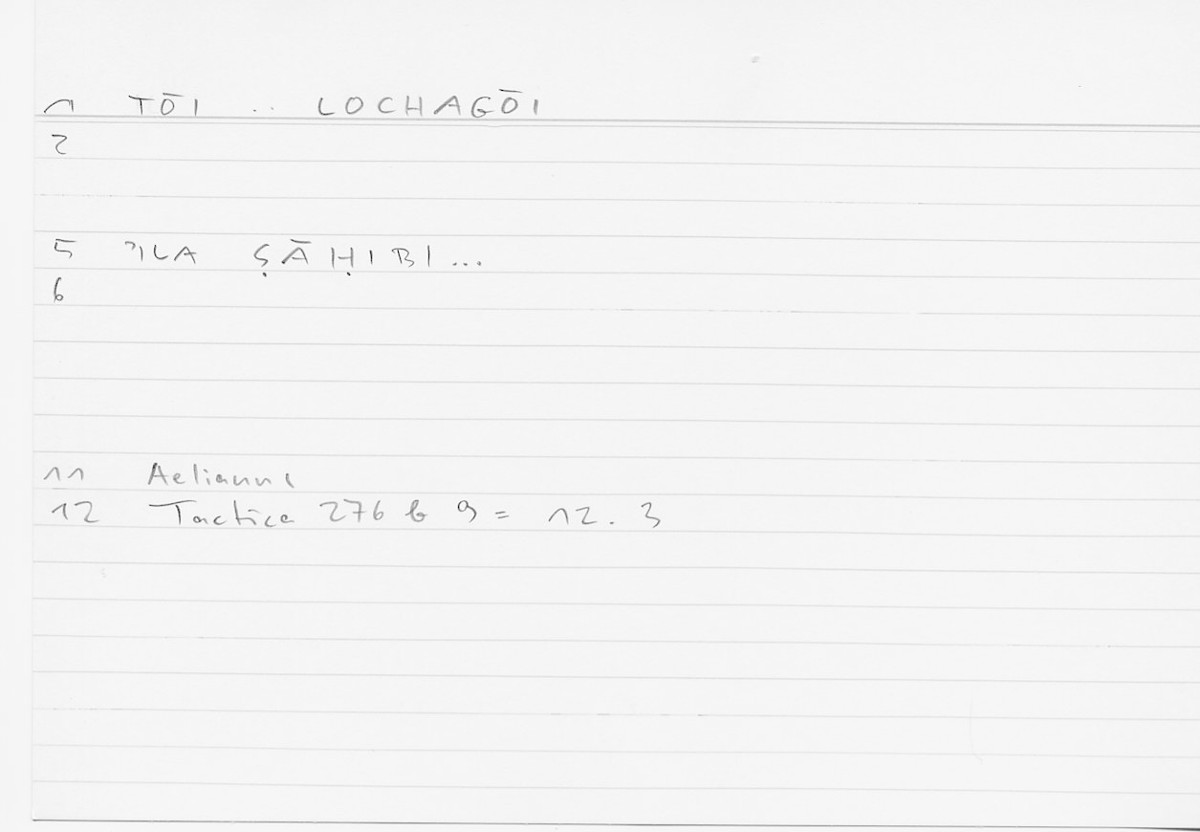 1 TŌI .. LOCHAGŌI
2
5 ʾILA ṢĀḤIBI...
6
11 Aelianus
12 Tactica 276 b 9 = 12.3